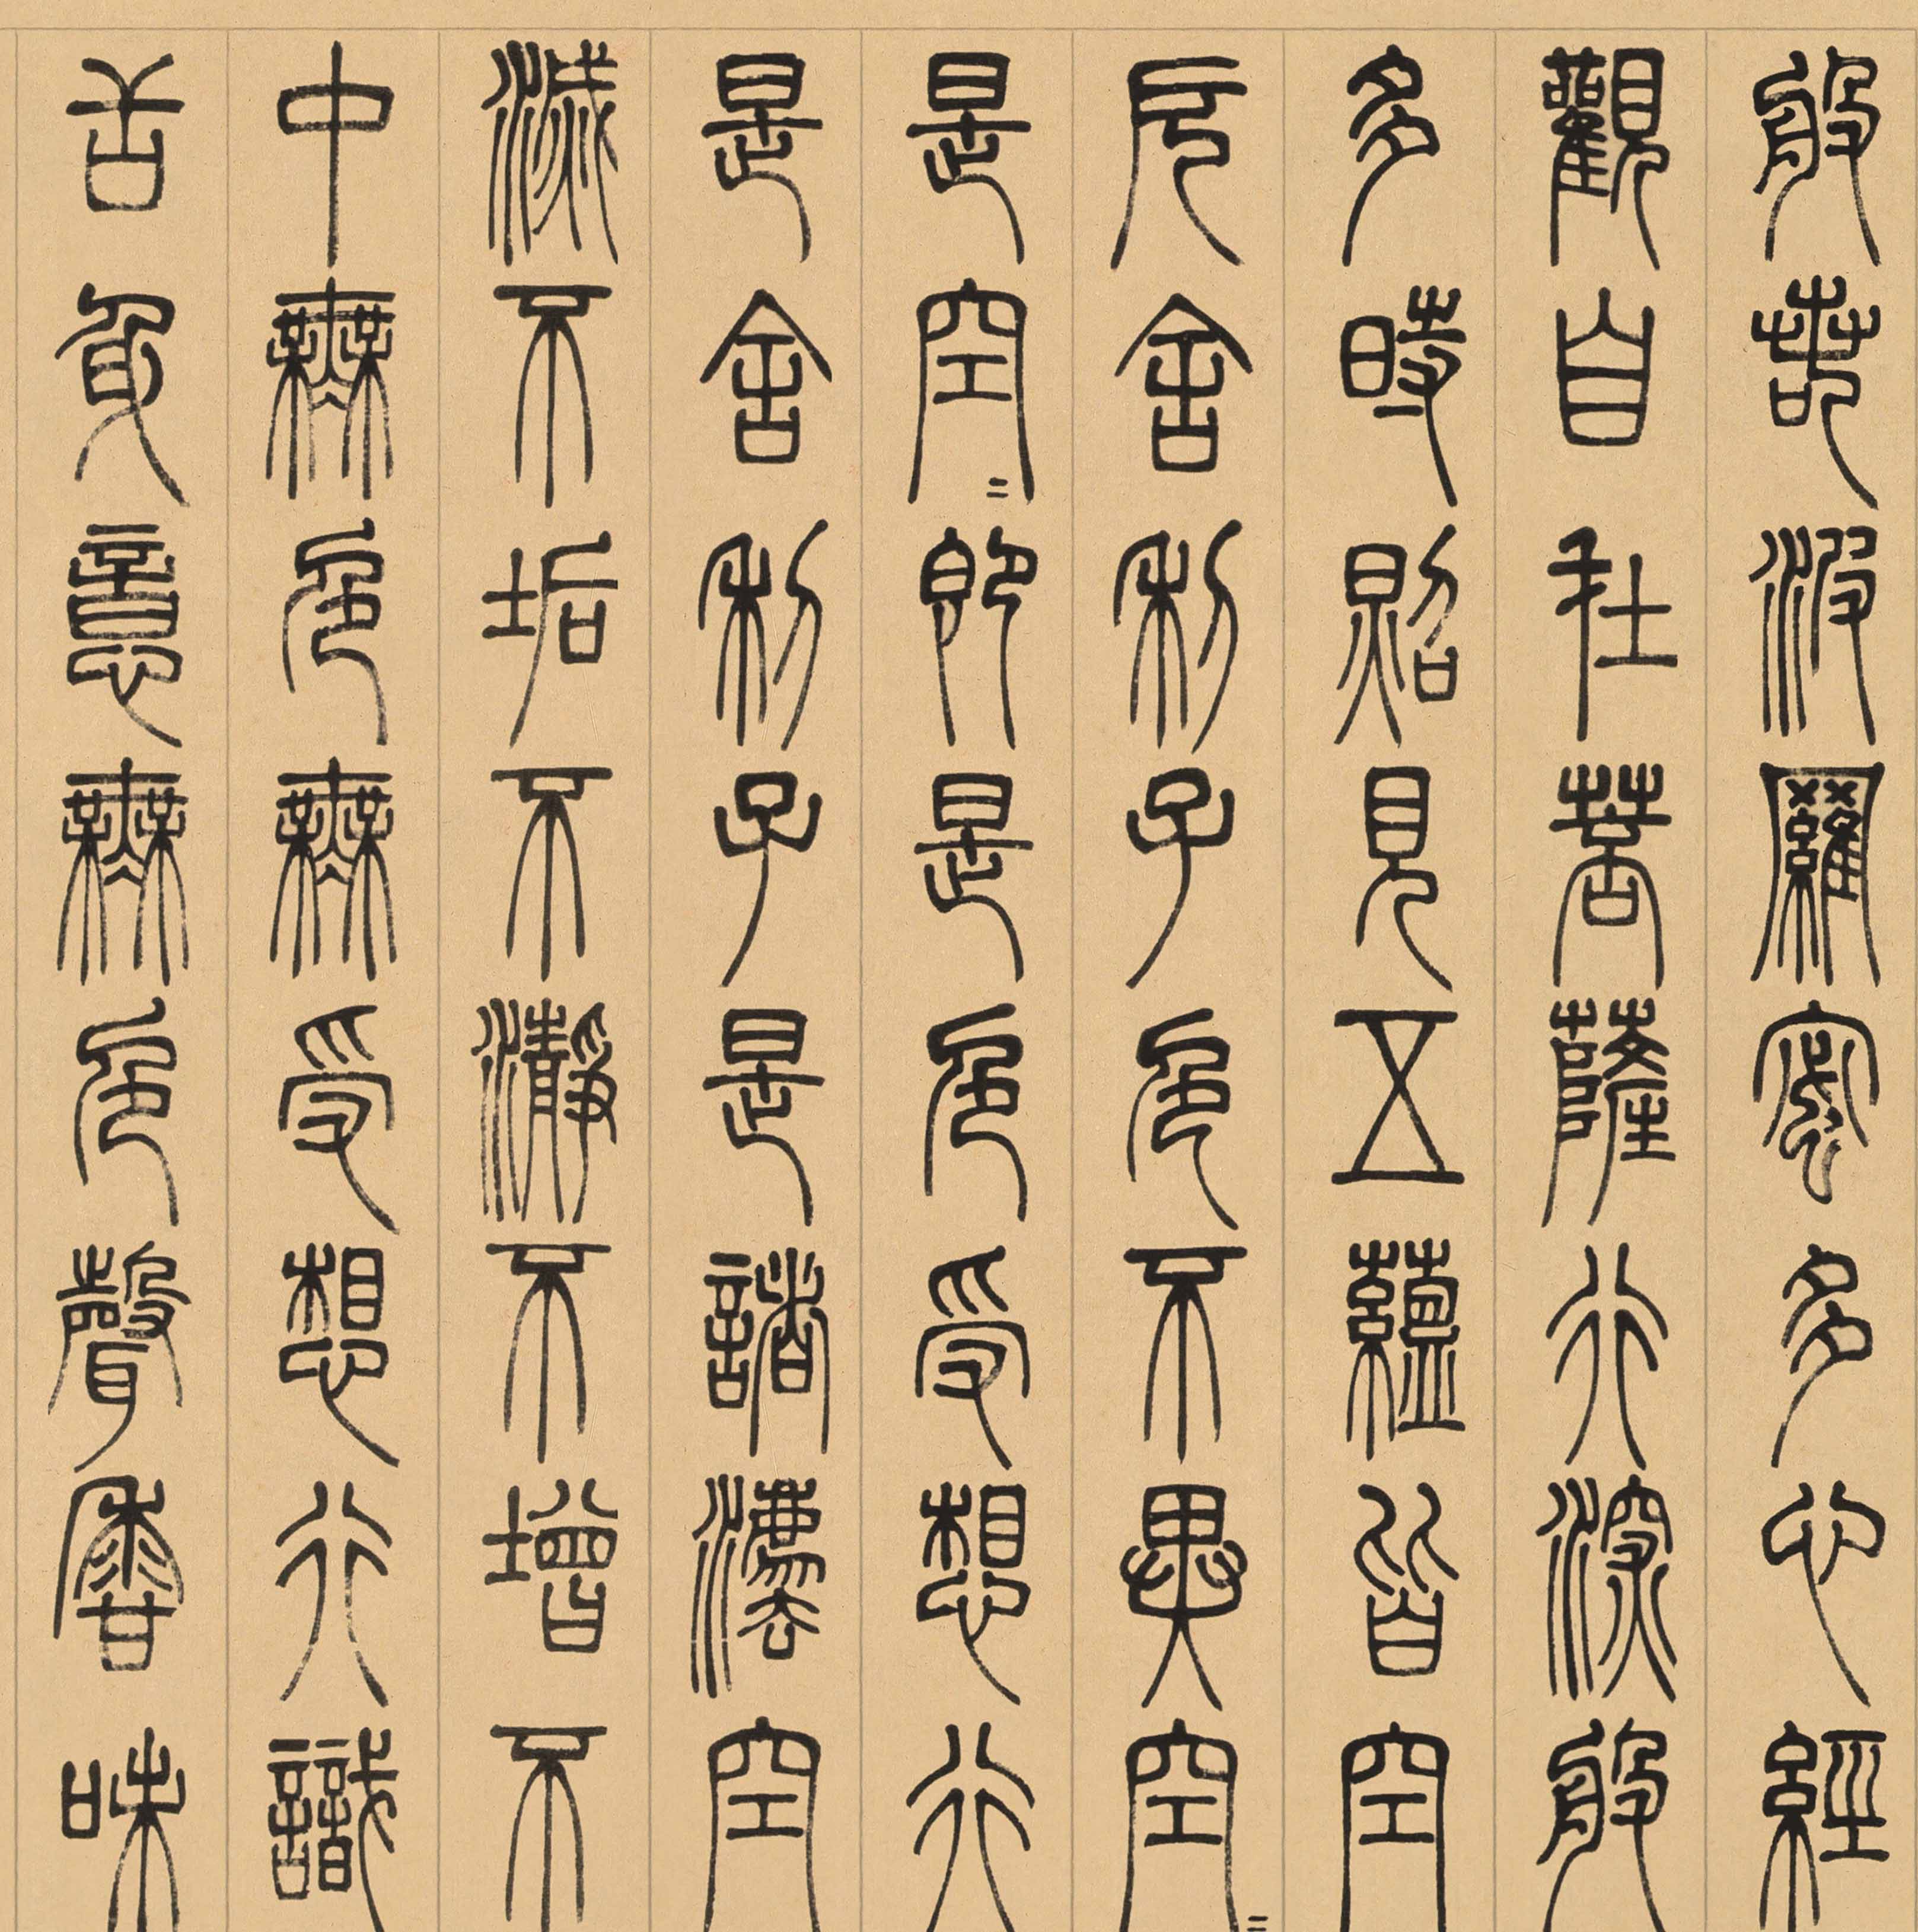 般若波羅蜜多心經
觀自在菩薩行深般
多時照見五蘊皆空
厄舍利子色不異空〻
是空〻即是色受想行
是舍利子是諸法空
滅不垢不瀞不增不
中無色無受想行識
舌身意無色聲香味